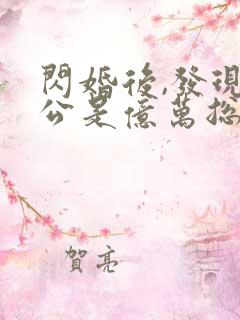 閃婚後,發現
公是億萬總
賀亮